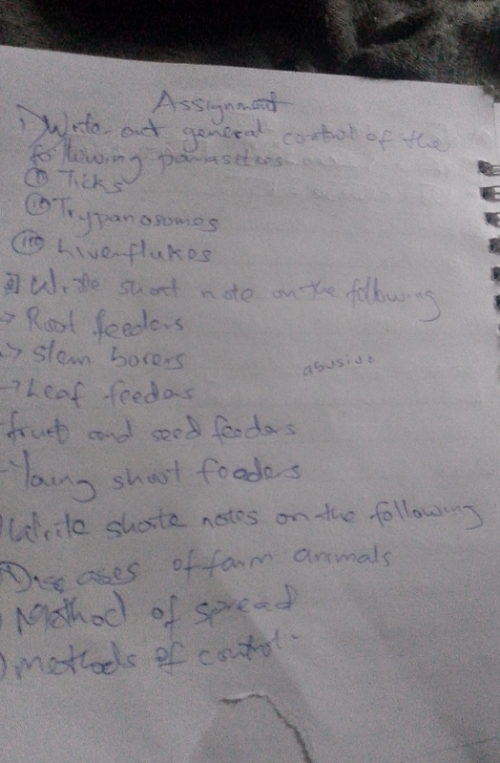 Assignment
1) Write out general control of the
following parasites
(i) Ticks
(ii) Trypanosomes
(iii) Liverflukes
2) Write short note on the following
-> Root feeders
-> Stem borers
abusive
-> Leaf feeders
fruit and seed feeders
- Young shoot feeders
) Write shote notes on the following
Diseases of farm animals
) Method of spread
) methods of control